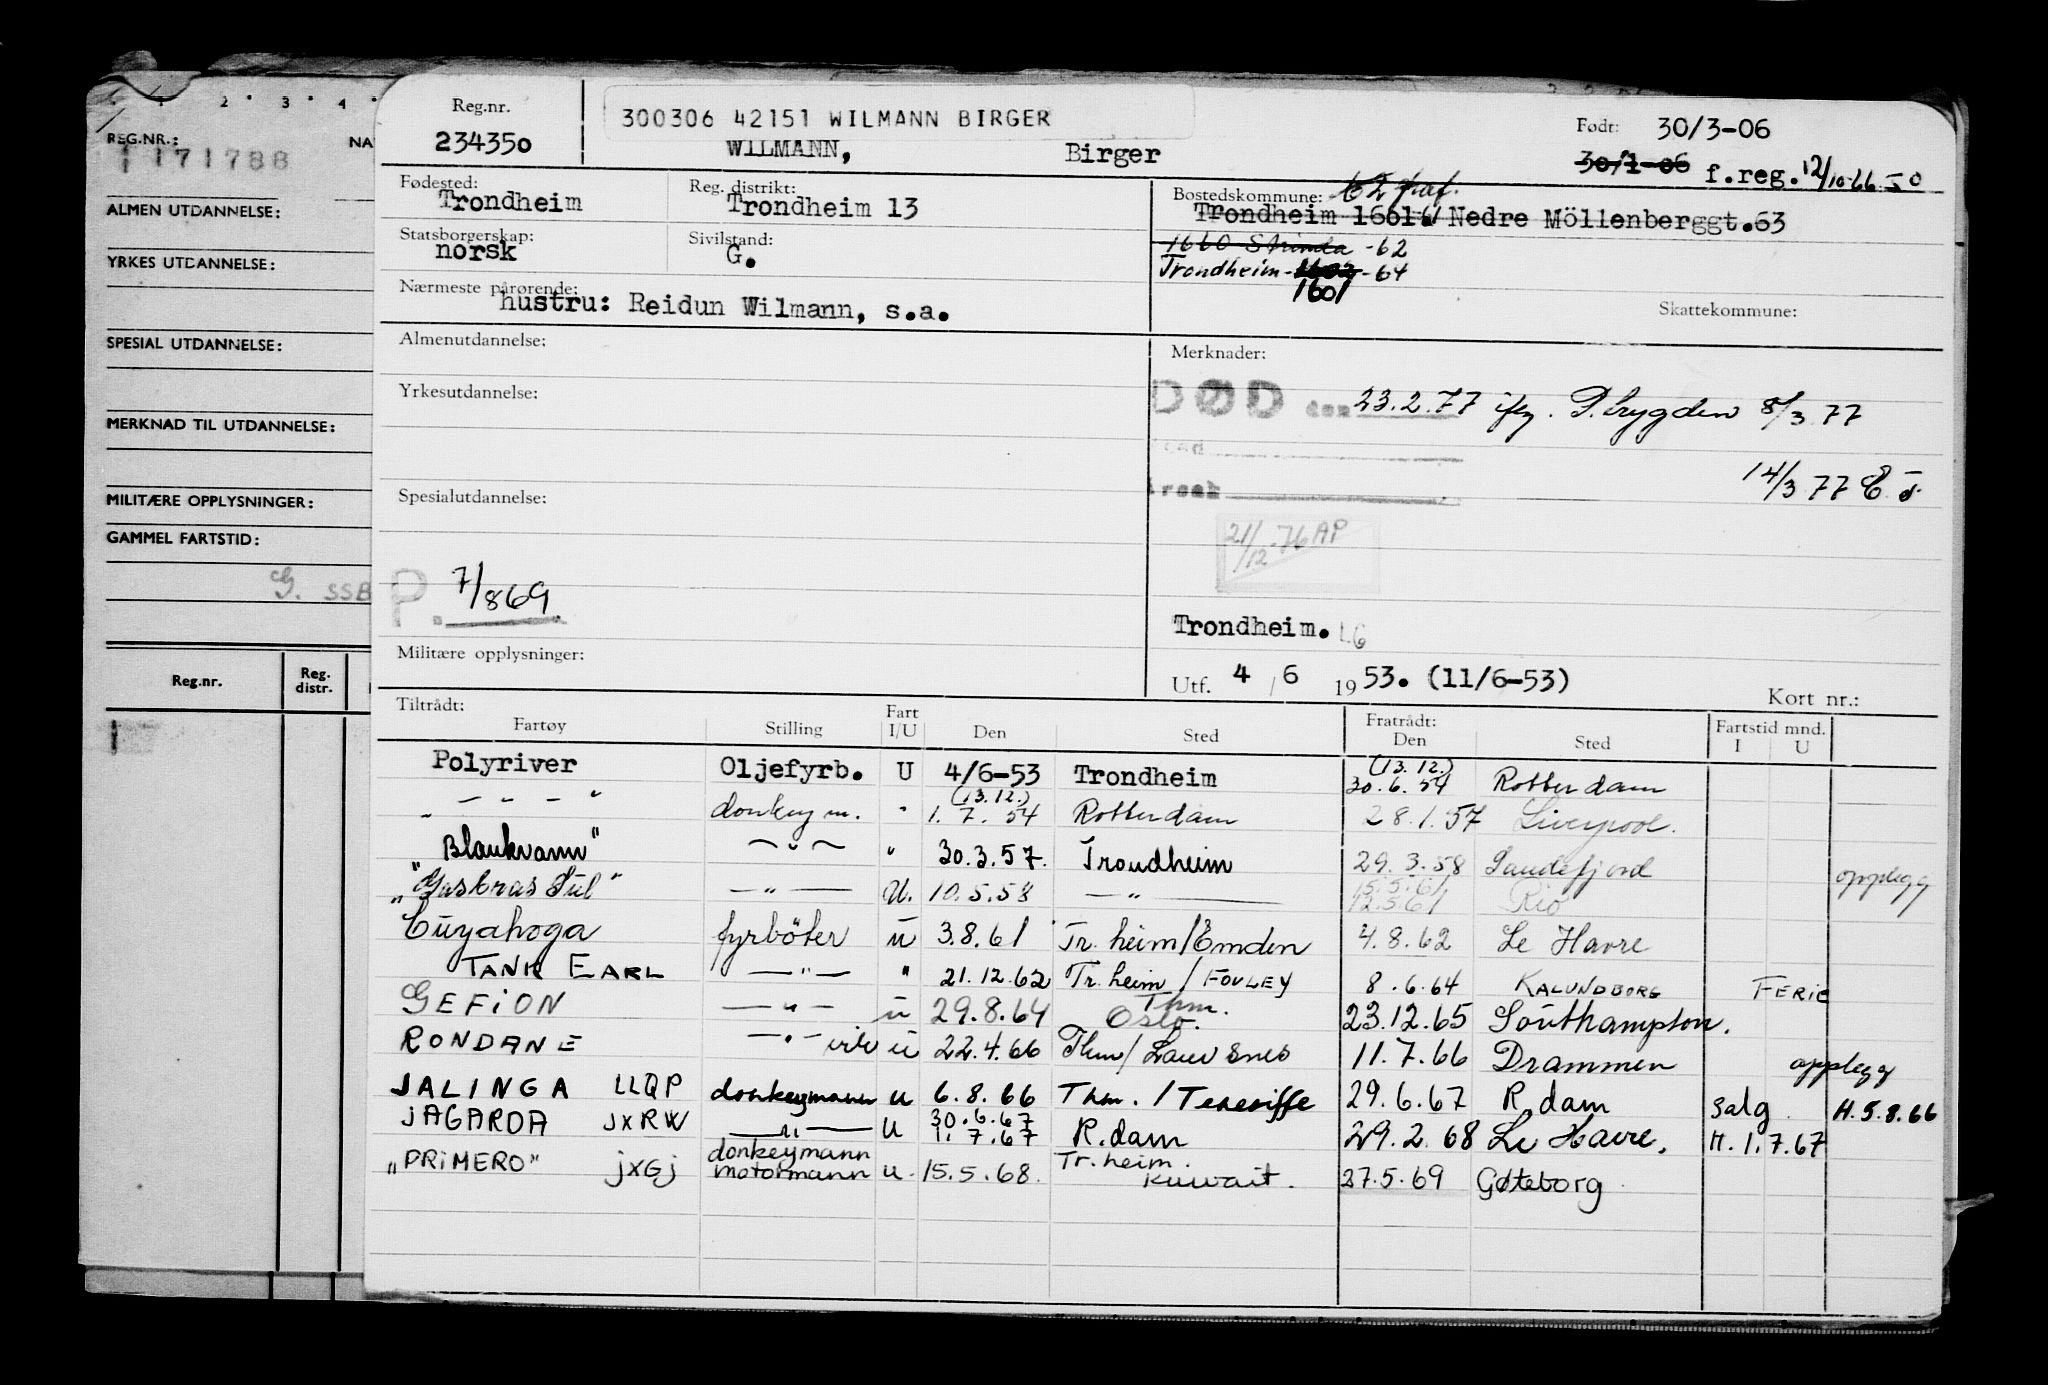 1 2 3 4
REG.NR.:
171788
ALMEN UTDANNELSE:
YRKES UTDANNELSE:
SPESIAL UTDANNELSE:
MERKNAD TIL UTDANNELSE:
MILITÆRE OPPLYSNINGER:
GAMMEL FARTSTID:
G. SSB
Reg.nr. Reg. distr.
Reg.nr.
234350
300306 42151 WILMANN BIRGER
WILMANN, Birger
Født: 30/3-06
30/1-06 f.reg. 12/10-66
Fødested: Trondheim
Reg. distrikt: Trondheim 13
Bostedskommune:
Trondheim 1601. Nedre Möllenberggt.63
1660 Strinda -62
Trondheim-1602-64
1601
Statsborgerskap: norsk
Sivilstand: G.
Nærmeste pårørende: hustru: Reidun Wilmann, s.a.
Skattekommune:
Almenutdannelse:
Yrkesutdannelse:
Spesialutdannelse:
P. 7/869.
Militære opplysninger:
Merknader:
DØD den 23.2.77 P.trygden 8/3 77
14/3 77
21/12-76 AP
Trondheim. LG
Utf. 4/6 1953. (11/6-53)
Kort nr.:
Tiltrådt: Fratrådt: Fartstid mnd.
Fartøy Stilling Fart I/U Den Sted Den Sted I U
Polyriver Oljefyrb. U 4/6-53 Trondheim (13.12.) 30.6.54 Rotterdam
— " — " donkeym. " (13.12.) 1.7.54 Rotterdam 28.1.57 Liverpool.
"Blankvann" — " — " 30.3.57. Trondheim 29.3.58 Sandefjord
— " — U. 10.5.58 — " — 15.5.61 12.5.61 Rio opplegg
Cuyahoga fyrböter u 3.8.61 Tr.heim/Emden 4.8.62 Le Havre
TANK EARL — " — " 21.12.62 Tr.heim / FOVLEY 8.6.64 KALUNDBORG FERIE
GEFION — " — u 29.8.64 Thm. Oslo. 23.12.65 Southampton.
RONDANE — " — u 22.4.66 Thm/ 11.7.66 Drammen opplegg
JALINGA LLQP donkeymann u 6.8.66 Thm. / Teneriffe 29.6.67 R.dam salg. H.5.8.66
JAGARDA JXRW — " — U 30.6.67 1.7.67 R.dam 29.2.68 Le Havre. H.1.7.67
"PRIMERO" JXGJ donkeymann motormann u. 15.5.68. Tr.heim. Kuwait. 27.5.69 Gøteborg